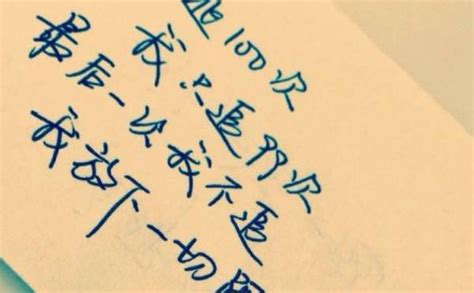 100次
我只追99次
最后一次我不追
我放下一切